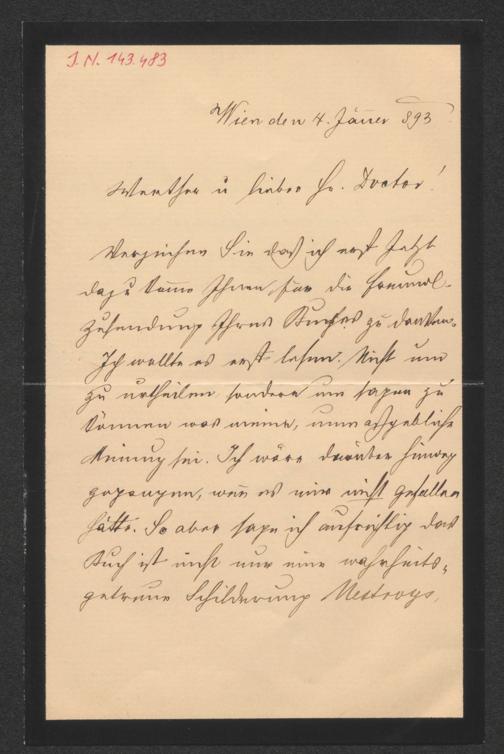 I. N. 143.483
Wien den 4. Jänner 893
Werther u lieber Hr. Doctor!
Verzeihen Sie daß ich erst jetzt
dazu komme Ihnen für die freundl.
Zusendung Ihres Buches zu danken.
Ich wollte es erst lesen. Nicht um
zu urtheilen sondern um sagen zu
können was meine, unmaßgebliche
Meinung sei. Ich wäre darüber hinweg
gegangen, wenn es mir nicht gefallen
hätte. So aber sage ich aufrichtig das
Buch ist nicht nur eine wahrheits-
getreue Schilderung Nestroys,